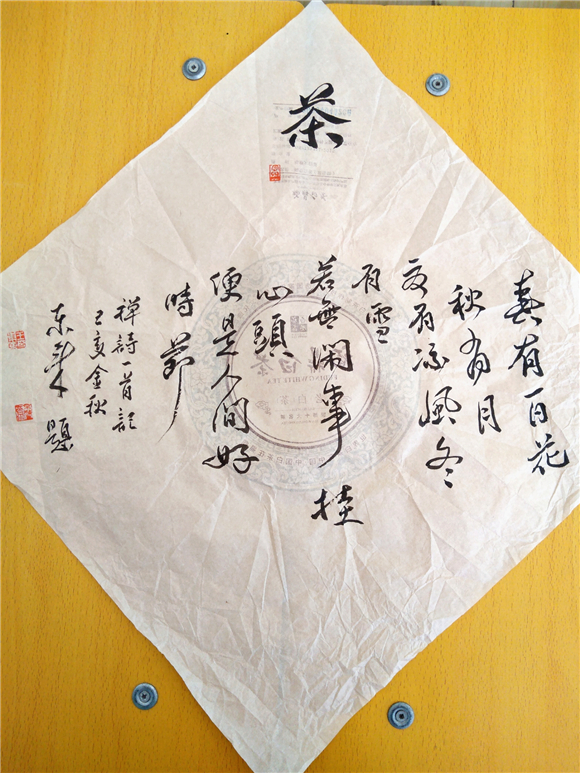 茶
春有百花
秋有月
夏有凉風冬
有雪
若無閑事掛
心頭
便是人間好
時節
禪詩一首記
己亥金秋
东華題